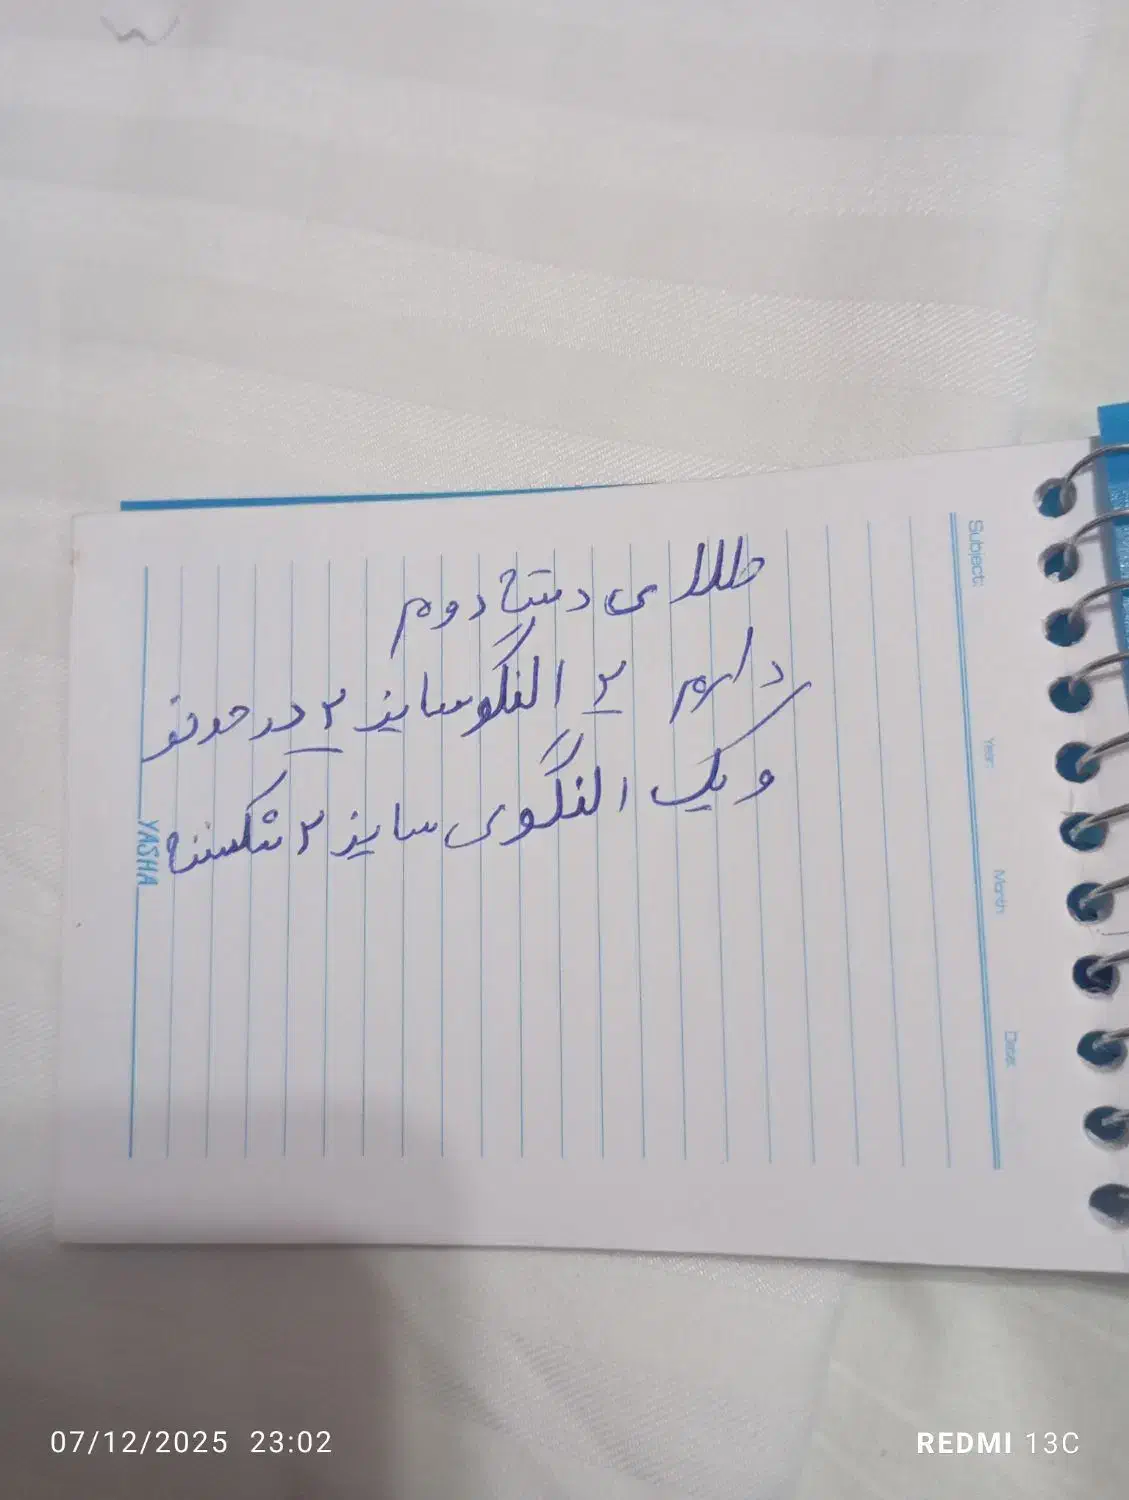 طلا ی دست دوم
دارم ۲ النگو سایز ۲ در حد نو
و یک النگوی سایز ۲ شکسته
Subject:
Year:
Month:
Date:
YASHA
07/12/2025 23:02
REDMI 13C